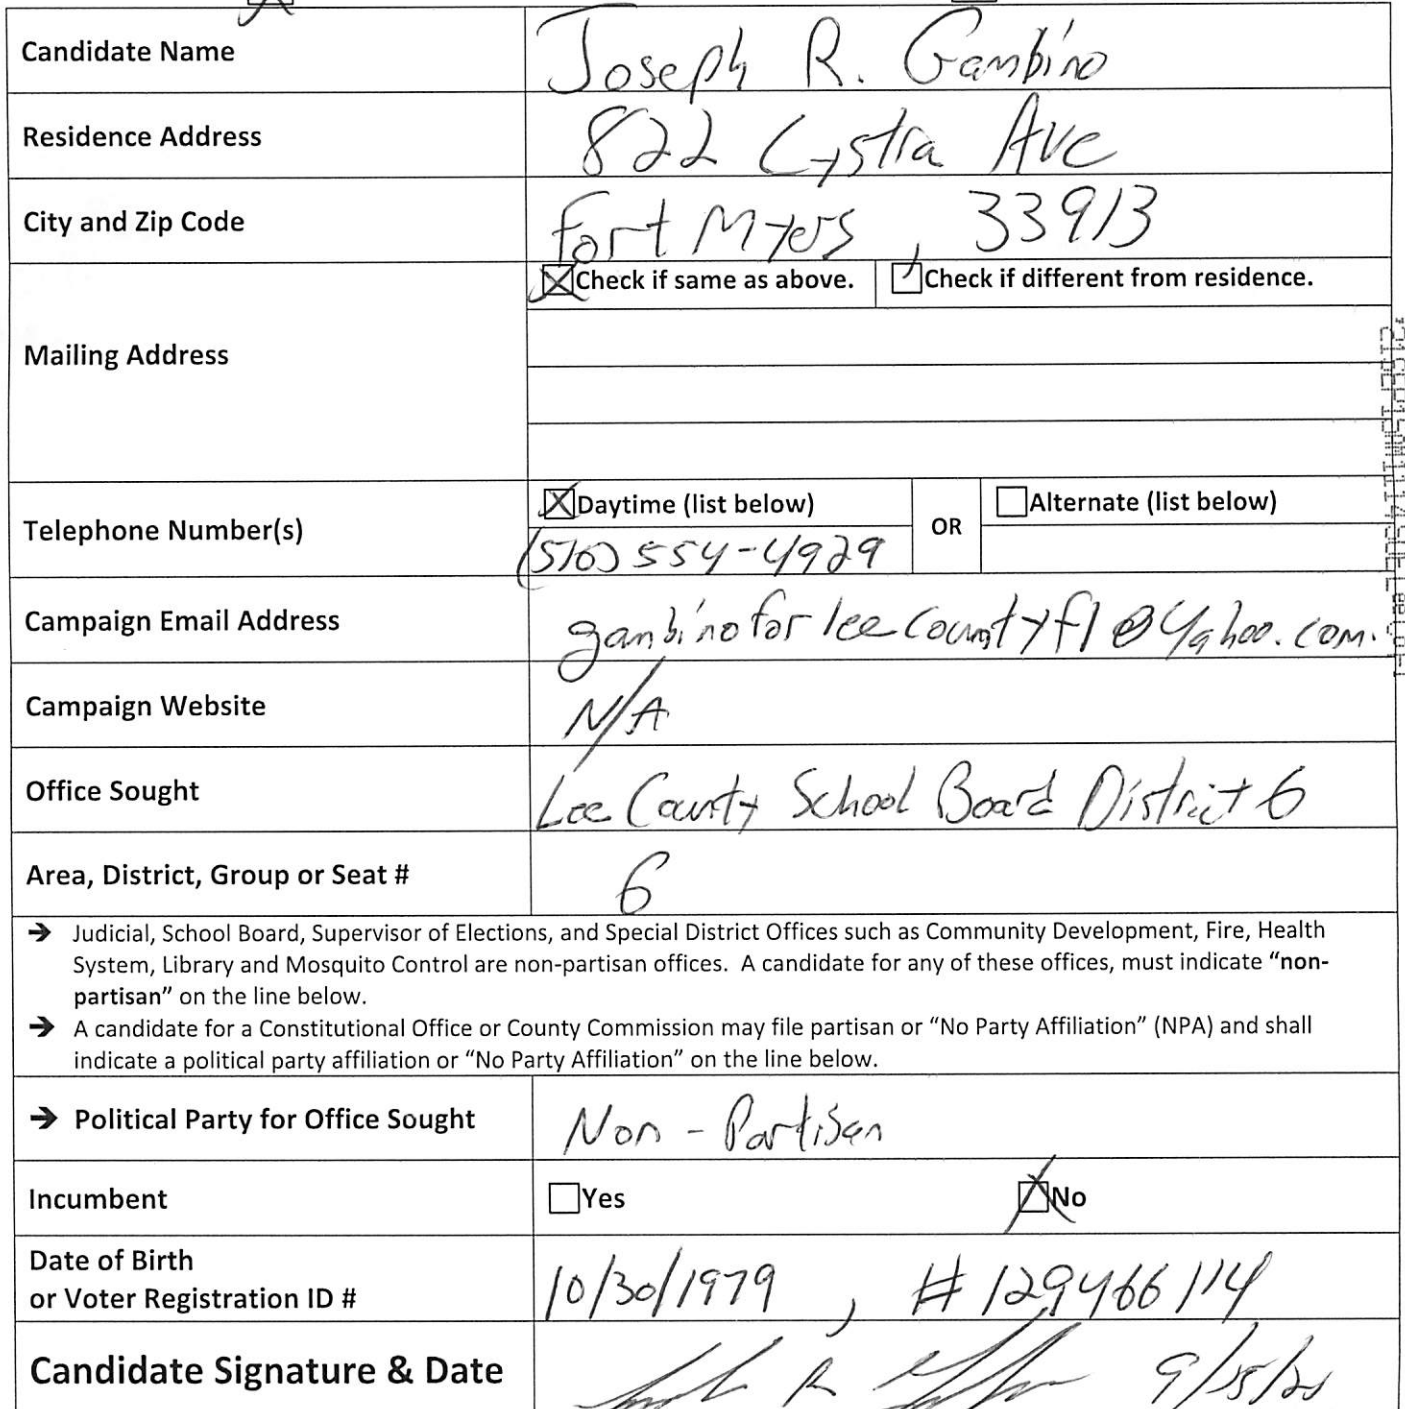 Candidate Name Joseph R. Gambino
Residence Address 822 Cystra Ave
City and Zip Code Fort Myers, 33913
Check if same as above. Check if different from residence.
Mailing Address
Daytime (list below) OR Alternate (list below)
Telephone Number(s) (516) 554-4929
Campaign Email Address gambinoforleecountyfl@yahoo.com.
Campaign Website N/A
Office Sought Lee County School Board District 6
Area, District, Group or Seat # 6
→ Judicial, School Board, Supervisor of Elections, and Special District Offices such as Community Development, Fire, Health
System, Library and Mosquito Control are non-partisan offices. A candidate for any of these offices, must indicate “non-
partisan” on the line below.
→ A candidate for a Constitutional Office or County Commission may file partisan or “No Party Affiliation” (NPA) and shall
indicate a political party affiliation or “No Party Affiliation” on the line below.
→ Political Party for Office Sought Non-Partisan
Incumbent Yes No
Date of Birth
or Voter Registration ID # 10/30/1979, #129466114
Candidate Signature & Date R